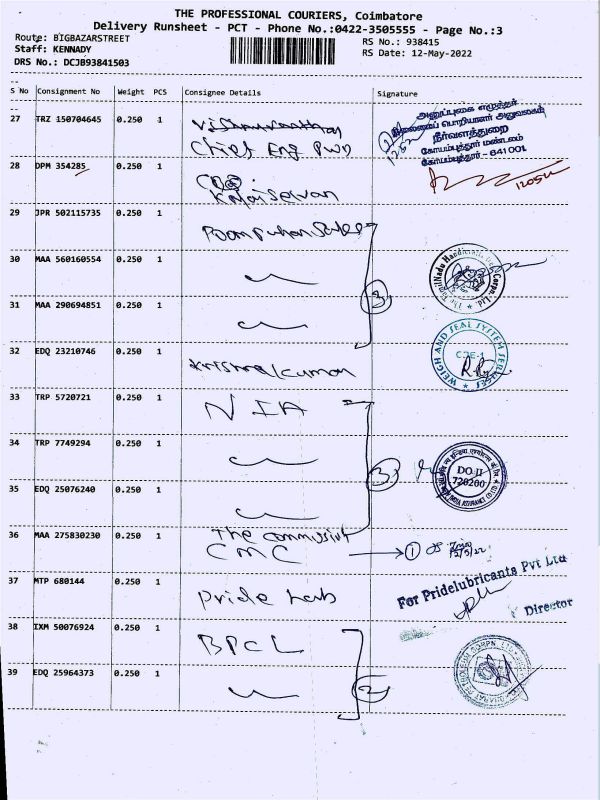 THE PROFESSIONAL COURIERS, Coimbatore
Delivery Runsheet - PCT - Phone No.:0422-3505555 - Page No.:3
Route: BIGBAZARSTREET
RS No.: 938415
Staff: KENNADY
RS Date: 12-May-2022
DRS No.: DCJB93841503
S No Consignment No Weight PCS Consignee Details Signature
27 TRZ 150704645 0.250 1
Chief Eng PWD
அனுப்புகை எழுத்தர்
தலைமைப் பொறியாளர் அலுவலகம்
நீர்வளத்துறை
கோயம்புத்தூர் மண்டலம்
கோயம்புத்தூர் - 641 001
28 DPM 354285 0.250 1
Kalaiselvan
29 JPR 502115735 0.250 1
Poompuhar Sales
30 MAA 560160554 0.250 1
3
31 MAA 290694851 0.250 1
32 EDQ 23210746 0.250 1
Krishnakumar
WEIGH AND SEAL SYSTEM SERVICES
CBE-1
33 TRP 5720721 0.250 1
NIA
34 TRP 7749294 0.250 1
3
DO II
720200
35 EDQ 25076240 0.250 1
36 MAA 275830230 0.250 1
The commissint
CMC
1
12/5/22
37 MTP 680144 0.250 1
Pride Lub
For Pridelubricants Pvt Ltd
Director
38 IXM 50076924 0.250 1
BPCL
39 EDQ 25964373 0.250 1
2